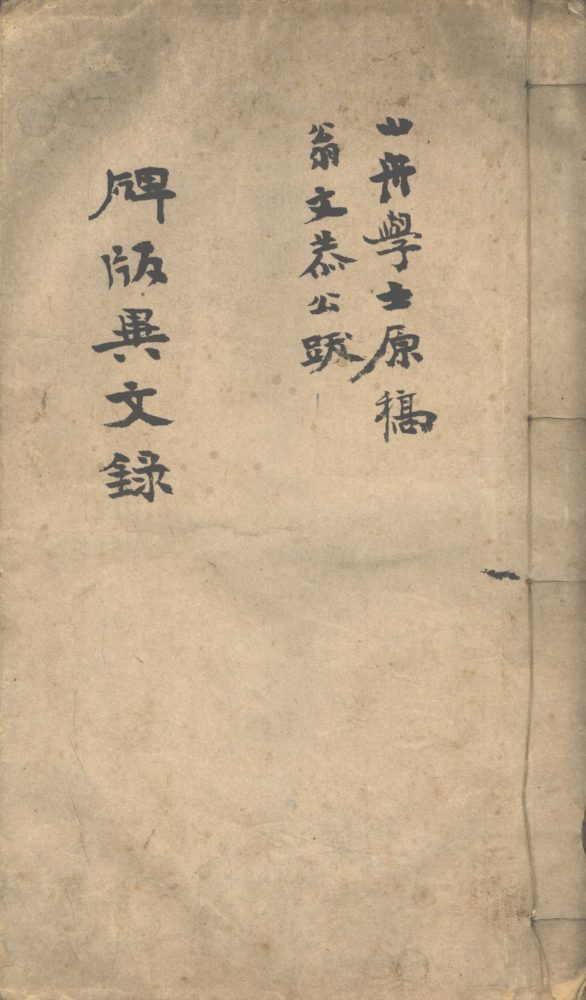 山舟學士原稿
翁文恭公跋
碑版異文錄